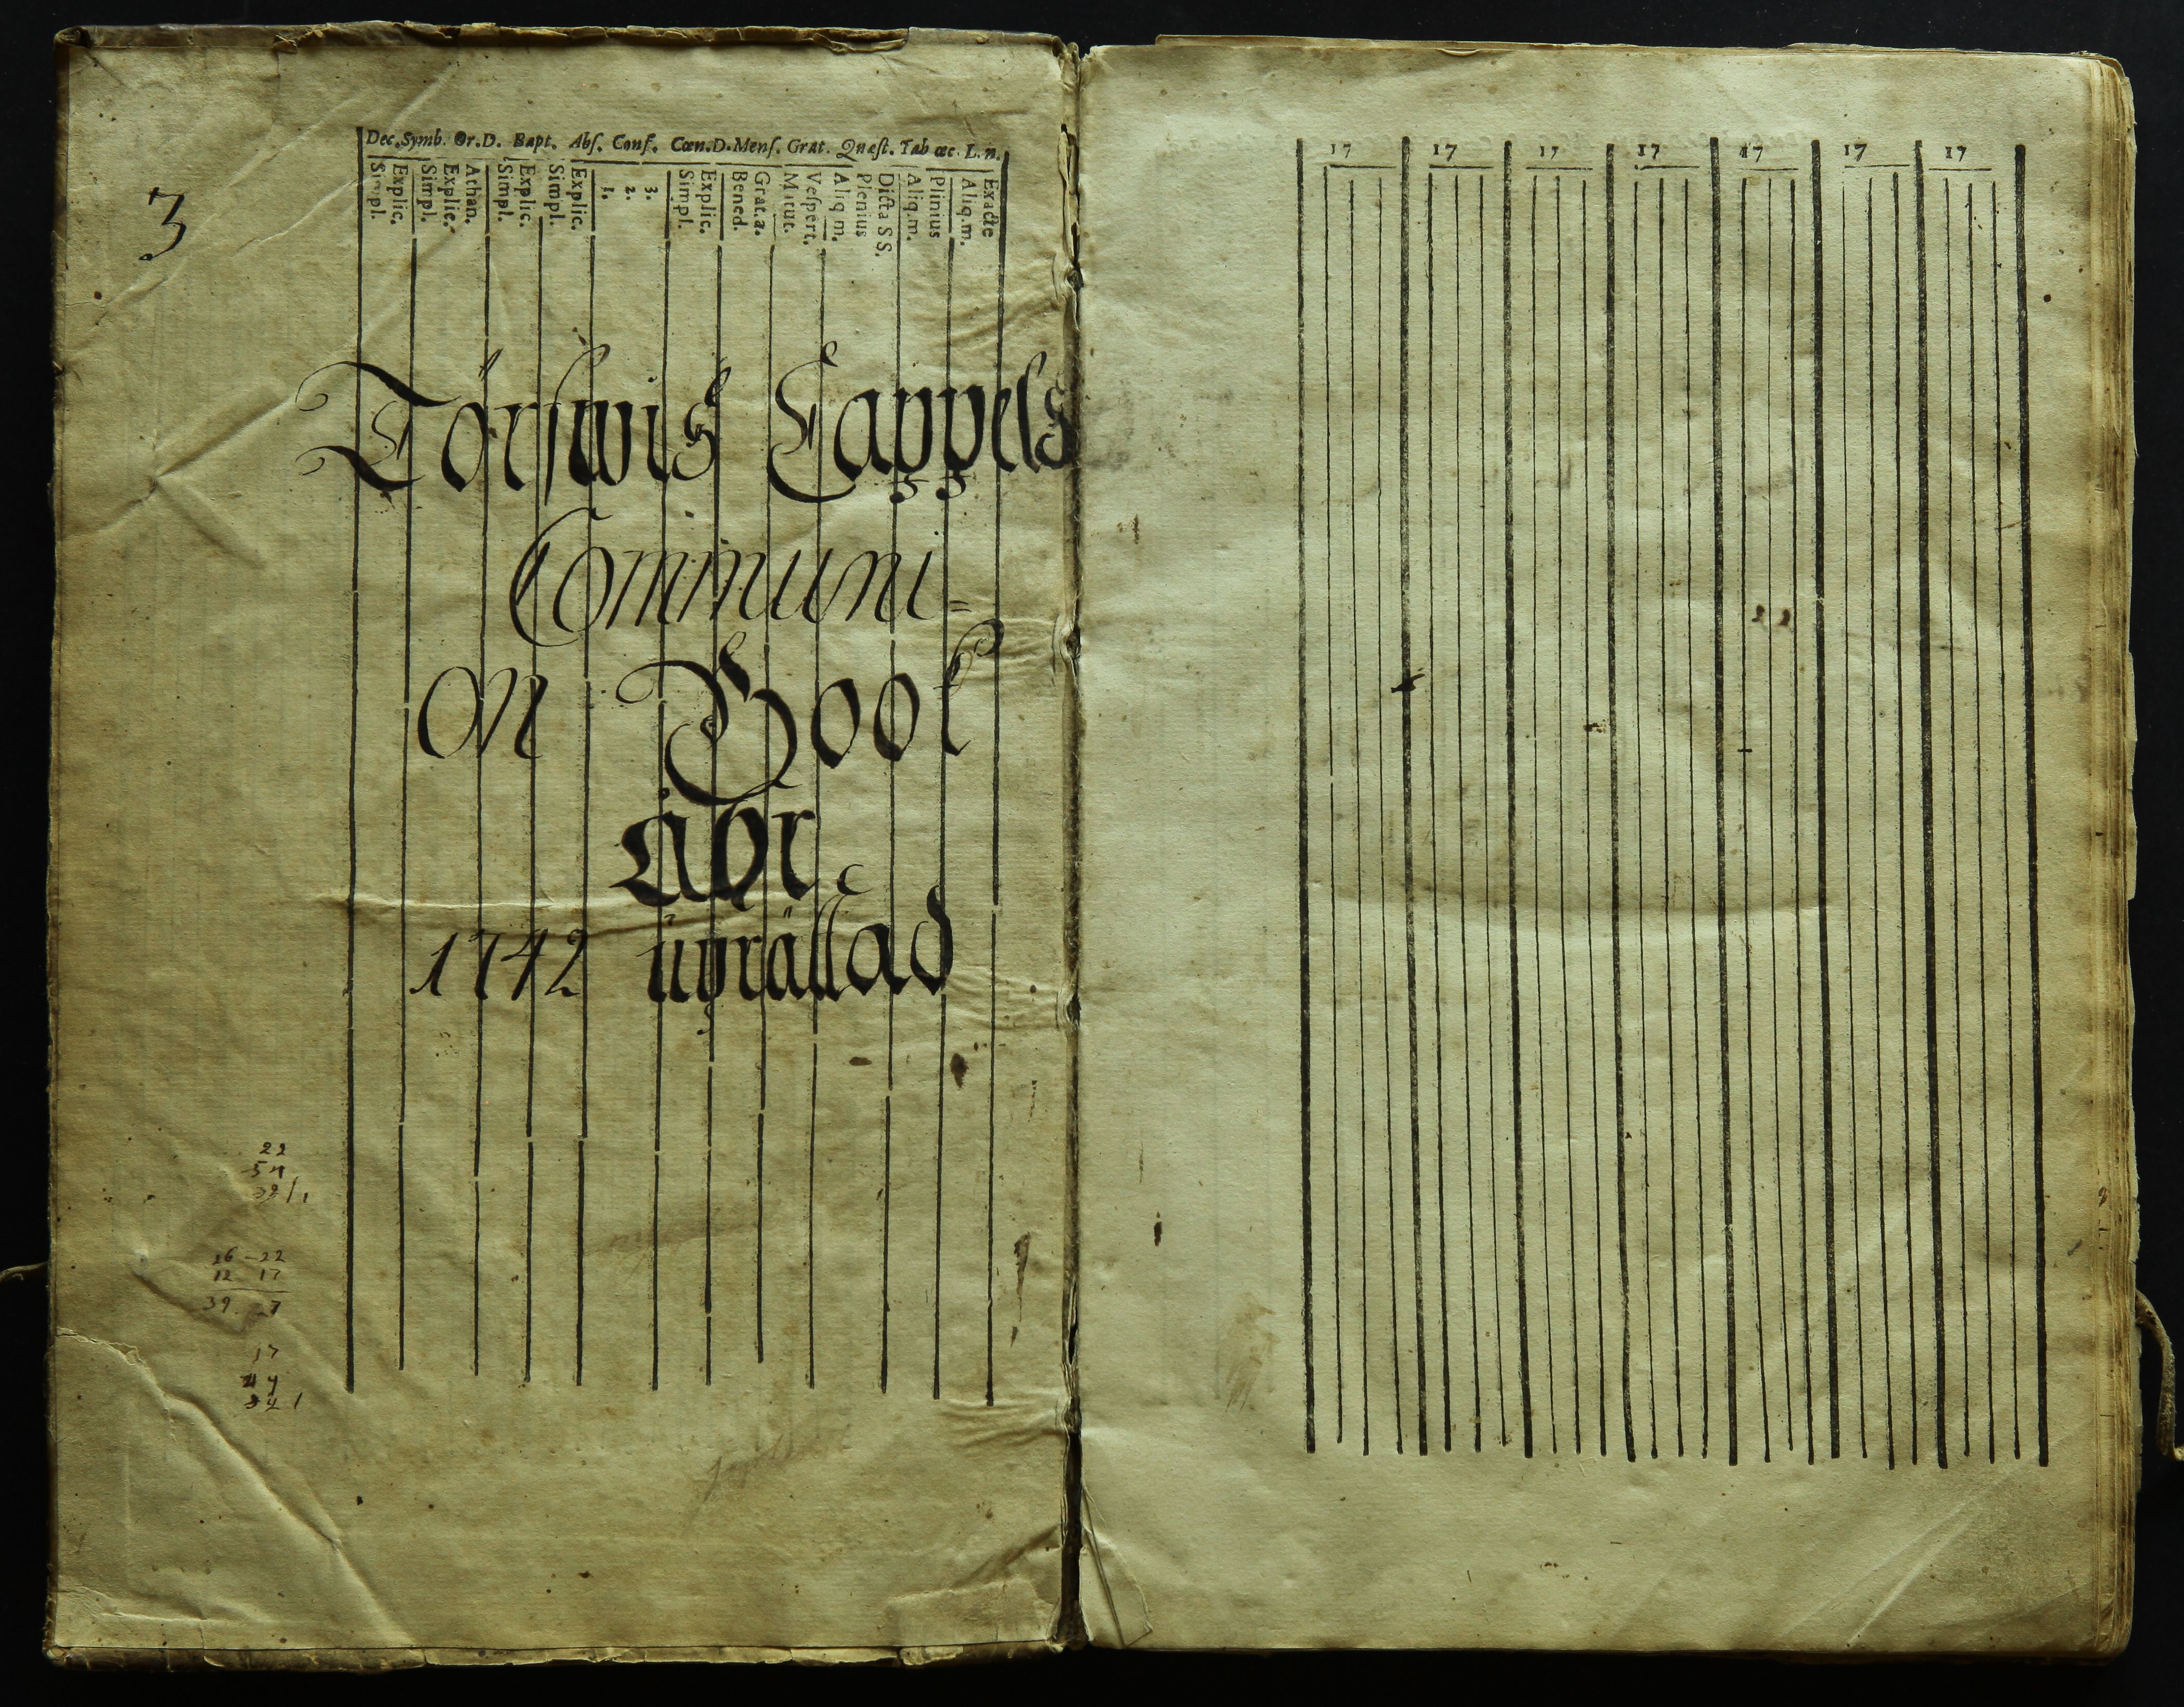 3
Dec. Symb. Or. D. Bapt. Abs. Conf. Cœn. D. Mens. Grat. Quæst. Tab œc. L. n.
Simpl.
Explic.
Simpl.
Explic.
Athan.
Simpl.
Explic.
Simpl.
Explic.
1.
2.
3.
Simpl.
Explic.
Bened.
Grat. a.
Matut.
Vespert.
Aliq m.
Plenius
Dicta SS.
Aliq. m.
Plinius
Aliq. m.
Exacte
Törswis Cappels
Communi=
on Book
Åhr
1742 uprättad
22
26 - 22
12 17
39
17
17 17 17 17 17 17 17